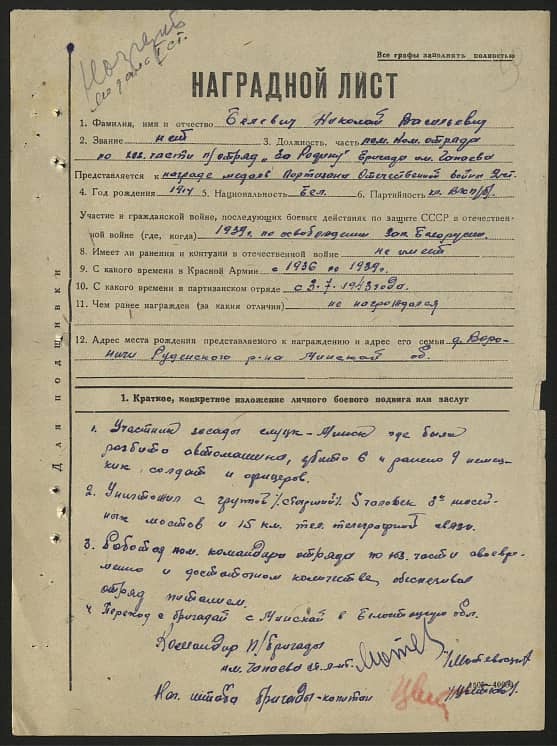 Награ
медаль II ст.
Все графы заполнять полностью
НАГРАДНОЙ ЛИСТ
1. Фамилия, имя и отчество Белевич Николай Васильевич
2. Звание нет 3. Должность, часть пом. ком. отряда
по хоз. части п/отряд „За Родину" бригада им. Чапаева
Представляется к награде медаль Партизана Отечественной войны 2 ст.
4. Год рождения 1914 5. Национальность бел. 6. Партийность ВКП(б)
Участие в гражданской войне, последующих боевых действиях по защите СССР в отечествен-
ной войне (где, когда) 1939 г. по освобождению Зап Белорусии.
8. Имеет ли ранения и контузии в отечественной войне не имеет
9. С какого времени в Красной Армии с 1936 по 1939 г.
10. С какого времени в партизанском отряде с 3.7.1943 года.
11. Чем ранее награжден (за какия отличия) не награждался
12. Адрес места рождения представляемого к награждению и адрес его семьи д. Воро-
ничи Руденского р-на Минской об.
Для подшивки
1. Краткое, конкретное изложение личного боевого подвига или заслуг
1. Участник засады Слуцк-Минск где была
разбита автомашина, убито 6 и ранено 9 немец-
ких солдат и офицеров.
2. Уничтожил с группой /старший/ 5 человек 3 шосей-
ных мостов и 15 км. тел. телеграфной связи.
3. Работая пом. командира отряда по хоз. части своевре-
менно и достаточном количестве обеспечивал
отряд питанием.
4. Переход с бригадой с Минской в Белостоцкую обл.
Командир п/бригады
им. Чапаева ст. л-нт.
Нач. штаба бригады-капитан